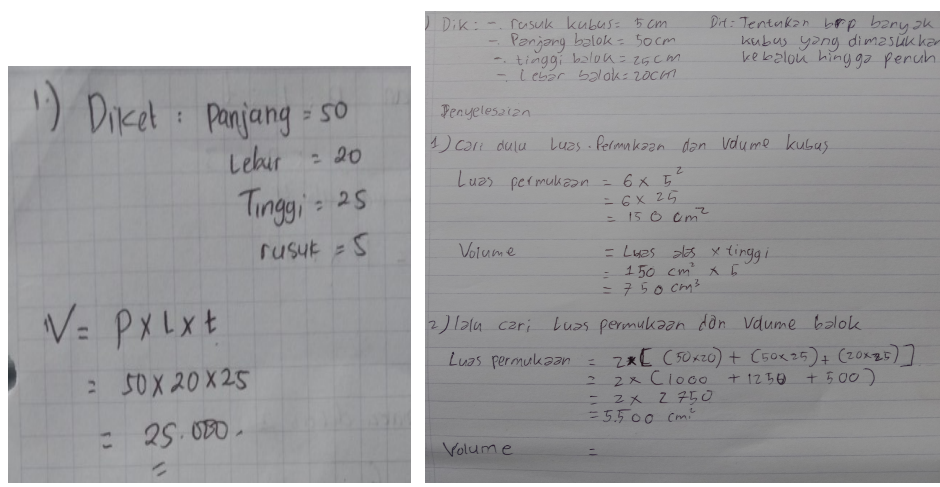 1.) Diket : Panjang = 50
Lebar = 20
Tinggi = 25
rusuk = 5
V = P x L x t
= 50 x 20 x 25
= 25.000.
=
) Dik : - rusuk kubus = 5 cm
- Panjang balok = 50 cm
- tinggi balok = 25 cm
- Lebar balok = 20 cm
Dit : Tentukan brp banyak
kubus yang dimasukkan
ke balok hingga penuh
Penyelesaian
1) Cari dulu Luas Permukaan dan Volume kubus
Luas permukaan = 6 x 5²
= 6 x 25
= 150 cm²
Volume = Luas alas x tinggi
= 150 cm² x 5
= 750 cm³
2) lalu cari Luas permukaan dan Volume balok
Luas permukaan = 2 x [ (50x20) + (50x25) + (20x25) ]
= 2 x (1000 + 1250 + 500)
= 2 x 2 750
= 5.500 cm²
Volume =